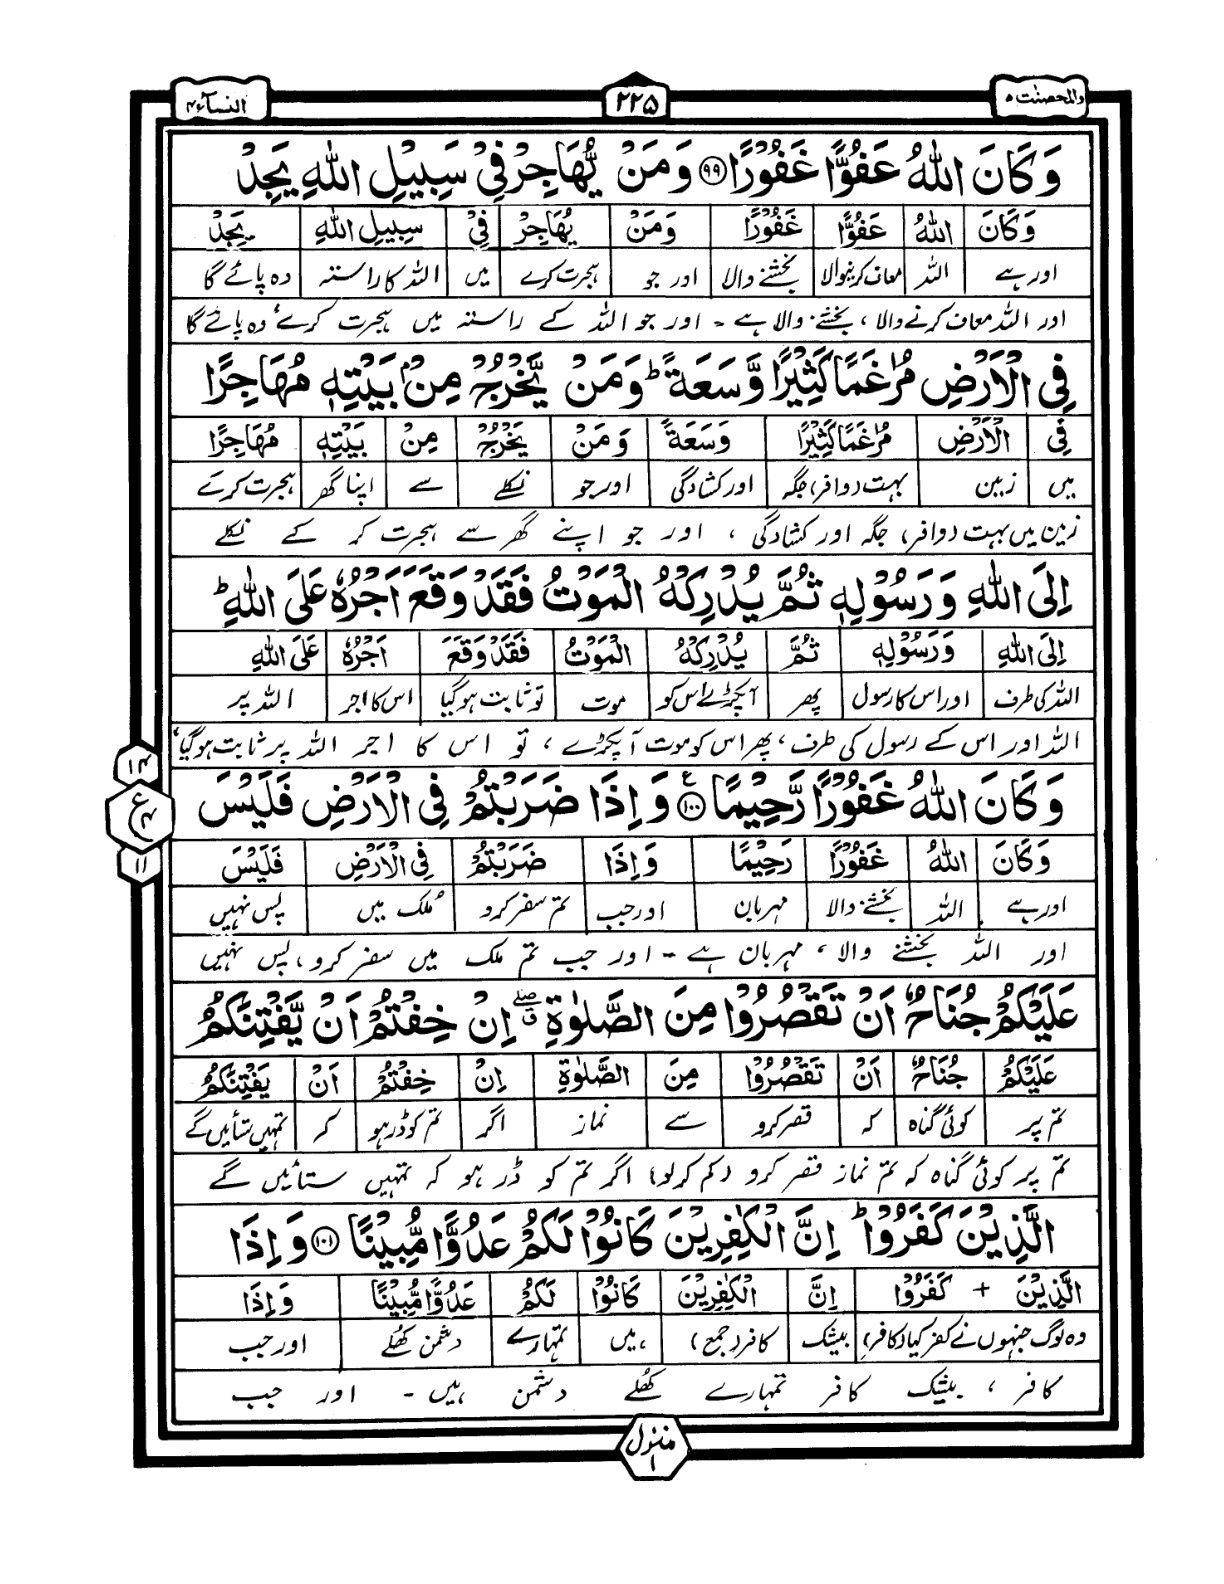 والمحصنت ۵
۲۲۵
النسآء ۴
وَكَانَ اللّٰهُ عَفُوًّا غَفُوْرًا ﴿۹۹﴾ وَمَنْ يُّهَاجِرْ فِيْ سَبِيْلِ اللّٰهِ يَجِدْ
وَكَانَ اللّٰهُ عَفُوًّا غَفُوْرًا وَمَنْ يُهَاجِرْ فِيْ سَبِيْلِ اللّٰهِ يَجِدْ
اور ہے اللہ معاف کرنیوالا بخشنے والا اور جو ہجرت کرے میں اللہ کا راستہ وہ پائے گا
اور اللہ معاف کرنے والا، بخشنے والا ہے ۔ اور جو اللہ کے راستہ میں ہجرت کرے وہ پائے گا
فِي الْاَرْضِ مُرٰغَمًا كَثِيْرًا وَّسَعَةً ؕ وَمَنْ يَّخْرُجْ مِنْۢ بَيْتِهٖ مُهَاجِرًا
فِي الْاَرْضِ مُرٰغَمًا كَثِيْرًا وَسَعَةً وَمَنْ يَخْرُجْ مِنْ بَيْتِهٖ مُهَاجِرًا
میں زمین بہت (وافر) جگہ اور کشادگی اور جو نکلے سے اپنا گھر ہجرت کرکے
زمین میں بہت (وافر) جگہ اور کشادگی ، اور جو اپنے گھر سے ہجرت کر کے نکلے
اِلَى اللّٰهِ وَرَسُوْلِهٖ ثُمَّ يُدْرِكْهُ الْمَوْتُ فَقَدْ وَقَعَ اَجْرُهٗ عَلَى اللّٰهِ ؕ
اِلَى اللّٰهِ وَرَسُوْلِهٖ ثُمَّ يُدْرِكْهُ الْمَوْتُ فَقَدْ وَقَعَ اَجْرُهٗ عَلَى اللّٰهِ
اللہ کی طرف اور اس کا رسول پھر آپکڑے اس کو موت تو ثابت ہوگیا اس کا اجر اللہ پر
اللہ اور اس کے رسول کی طرف، پھر اس کو موت آپکڑے ، تو اس کا اجر اللہ پر ثابت ہوگیا،
وَكَانَ اللّٰهُ غَفُوْرًا رَّحِيْمًا ﴿۱۰۰﴾ ع وَاِذَا ضَرَبْتُمْ فِي الْاَرْضِ فَلَيْسَ
۱۴
ع
۴
۱۱
وَكَانَ اللّٰهُ غَفُوْرًا رَحِيْمًا وَاِذَا ضَرَبْتُمْ فِي الْاَرْضِ فَلَيْسَ
اور ہے اللہ بخشنے والا مہربان اور جب تم سفر کرو ملک میں پس نہیں
اور اللہ بخشنے والا ، مہربان ہے ۔ اور جب تم ملک میں سفر کرو، پس نہیں
عَلَيْكُمْ جُنَاحٌ اَنْ تَقْصُرُوْا مِنَ الصَّلٰوةِ ۖ اِنْ خِفْتُمْ اَنْ يَّفْتِنَكُمُ
عَلَيْكُمْ جُنَاحٌ اَنْ تَقْصُرُوْا مِنَ الصَّلٰوةِ اِنْ خِفْتُمْ اَنْ يَفْتِنَكُمُ
تم پر کوئی گناہ کہ قصر کرو سے نماز اگر تم کو ڈر ہو کہ تمہیں ستائیں گے
تم پر کوئی گناہ کہ تم نماز قصر کرو (کم کرلو) اگر تم کو ڈر ہو کہ تمہیں ستائیں گے
الَّذِيْنَ كَفَرُوْا ؕ اِنَّ الْكٰفِرِيْنَ كَانُوْا لَكُمْ عَدُوًّا مُّبِيْنًا ﴿۱۰۱﴾ وَاِذَا
الَّذِيْنَ + كَفَرُوْا اِنَّ الْكٰفِرِيْنَ كَانُوْا لَكُمْ عَدُوًّا مُّبِيْنًا وَاِذَا
وہ لوگ جنہوں نے کفر کیا (کافر) بیشک کافر (جمع) ہیں تمہارے دشمن کھلے اور جب
کافر ، بیشک کافر تمہارے کھلے دشمن ہیں ۔ اور جب
منزل
۱